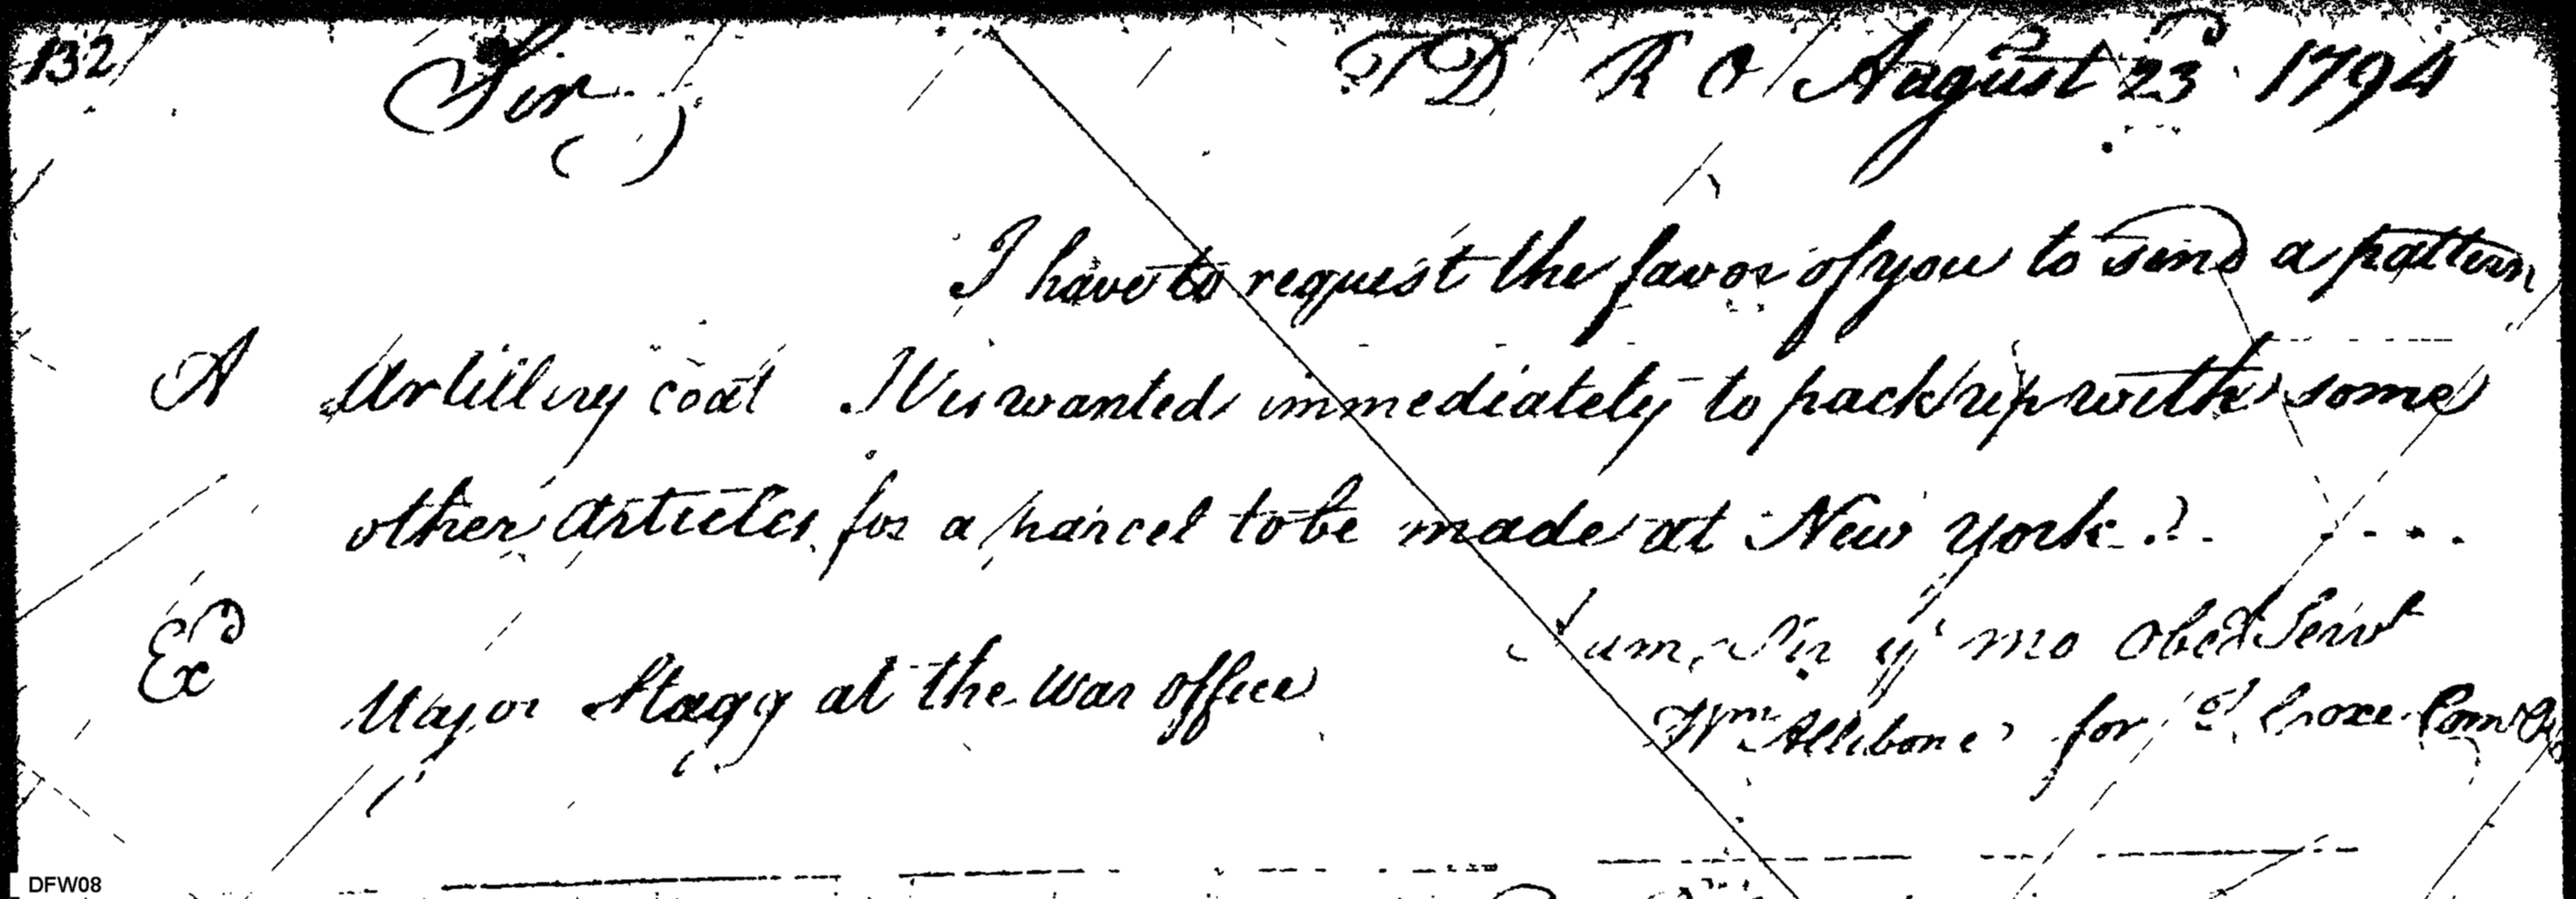 132
Sir T D R O August 23d 1794
I have to request the favor of you to send a pattern
A Artillery coat It is wanted immediately to pack up with some
other articles for a parcel to be made at New York
Exd
I am, Sir yr mo Obedt Servt
Major Stagg at the War office
Wm Allibone for T Coxe Comr Rv
DFW08